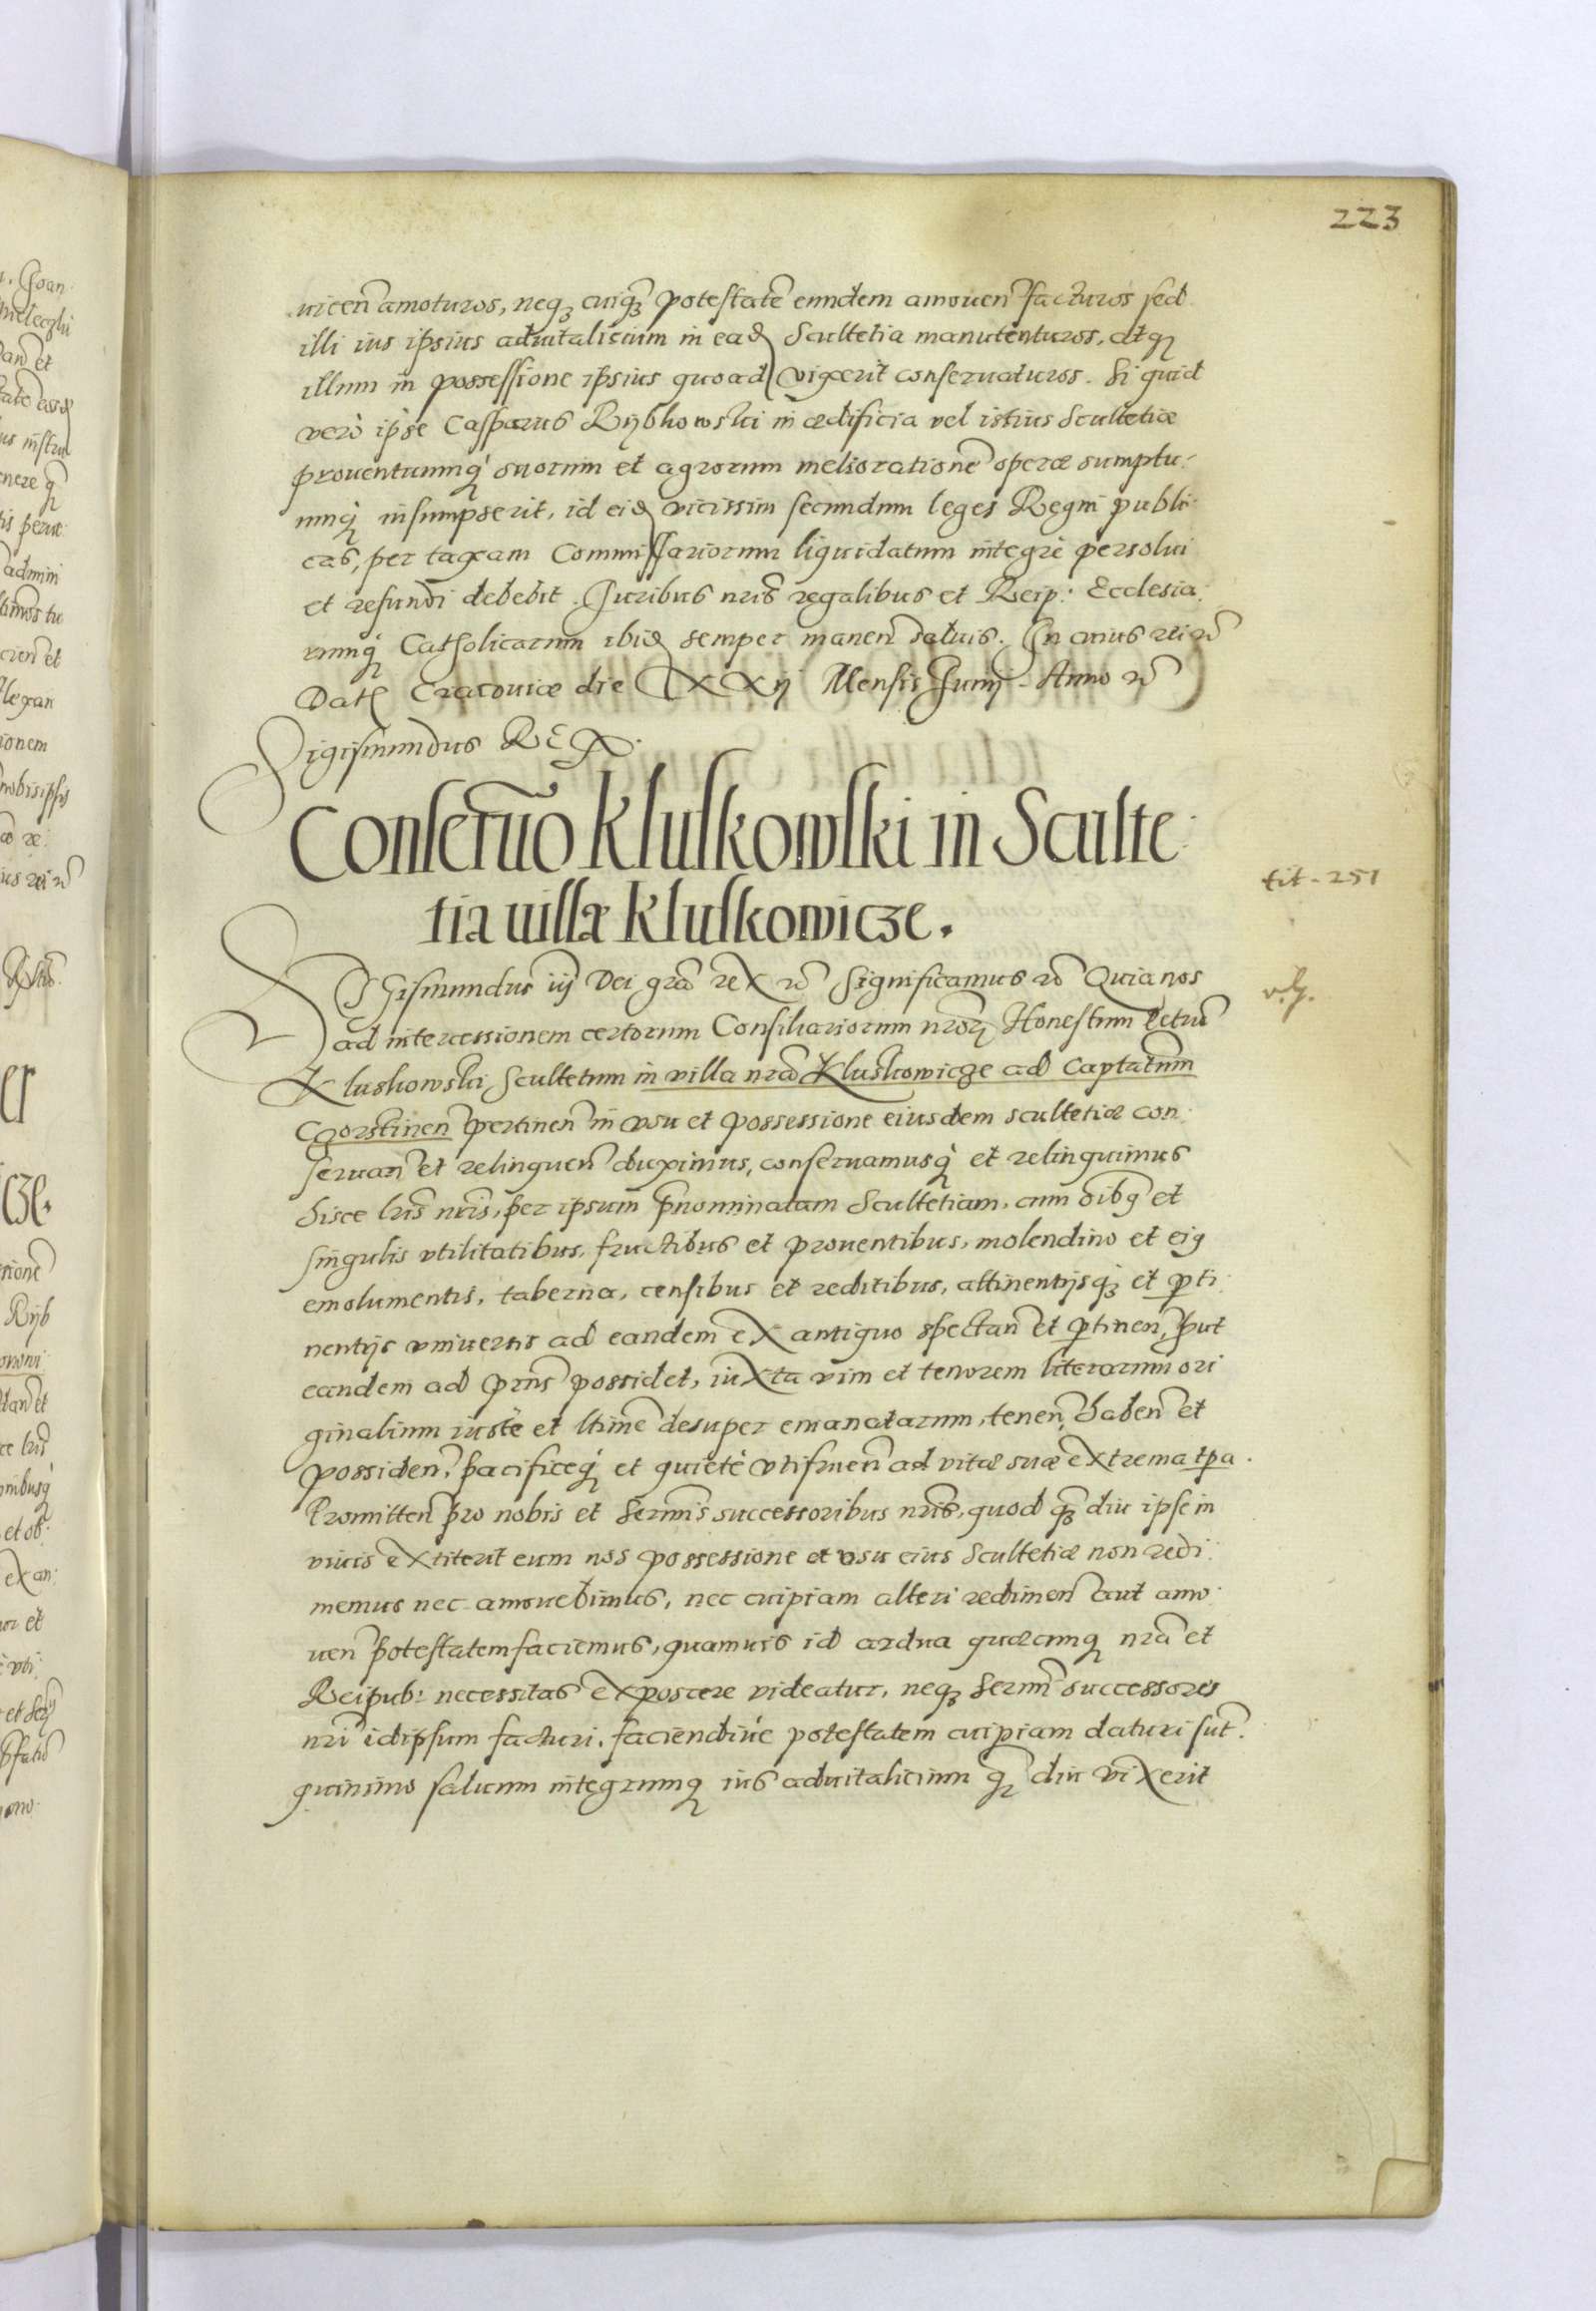 223
uicen̄ amoturos, neq₃ cuiq̄₃ potestatē eundem amouen̄ facturos sed
illi ius ipsius aduitalicium in ead Scultetia manutenturos, atq₃
illum in possessione ipsius quoad vixerit conseruaturos. Si quid
verò ipse Casparus Rybkowski in ædificia vel istius Scultetiæ
prouentuumq́ suorum et agrorum melioratione operæ sumptu:
umq́ insumpserit, id eid vicissim secundum leges Regni publi:
cas, per taxam Commissariorum liquidatum integrè persolui
et refundi debebit. Juribus nr̄is regalibus et Reip: Ecclesia:
rumq́ Catholicarum ibid semper manen̄ saluis. In cuius rei &c̄
Dat Cracouiæ die XXij Mensis Junij. Anno &c̄
Sigismundus REX.
Conseruō Kluskowski in Sculte:
tia uillæ Kluskowicze.
tit. 251
SIGismundus iij Dei gr̄a rex &c̄ Significamus &c̄ Quia nos
ad intercessionem certorum Consiliariorum nr̄or Honestum Petrū
Kluskowski Scultetum in villa nr̄a Kluskowicze ad Captatum
Czorstinen̄ pertinen̄ in vsu et possessione eiusdem scultetiæ con:
seruan̄ et relinquen̄ duximus, conseruamusq́ et relinquimus
hisce lr̄is nr̄is, per ipsum p̄nominatam Scultetiam, cum oībq et
singulis vtilitatibus, fructibus et prouentibus, molendino et eiq
emolumentis, taberna, censibus et reditibus, attinentijsq₃ et p̱ti:
nentijs vniuersis ad eandem ex antiquo spectan̄ et p̱tinen̄, put
eandem ad pr̄ns possidet, iuxta vim et tenorem literarum ori
ginalium iustè et ltimē desuper emanatarum, tenen̄, haben̄ et
possiden̄, pacificeq́ et quietè vtifruen̄ ad vitæ suæ extrema tpa.
Promitten̄ pro nobis et Serm̄is successoribus nr̄is, quod q̄₃ diu ipse in
viuis extiterit eum nos possessione et vsu eius Scultetiæ non redi:
memus nec amouebimus, nec cuipiam alteri redimen̄ aut amo:
uen̄ potestatem faciemus, quamuis id ardua quæcunq nr̄a et
Reipub: necessitas expostere videatur, neq₃ Serm̄i successores
nr̄i idipsum facturi, faciendiúe potestatem cuipiam daturi sut̄.
quinimo saluum integrumq ius aduitalicium q̄₃ diu vixerit